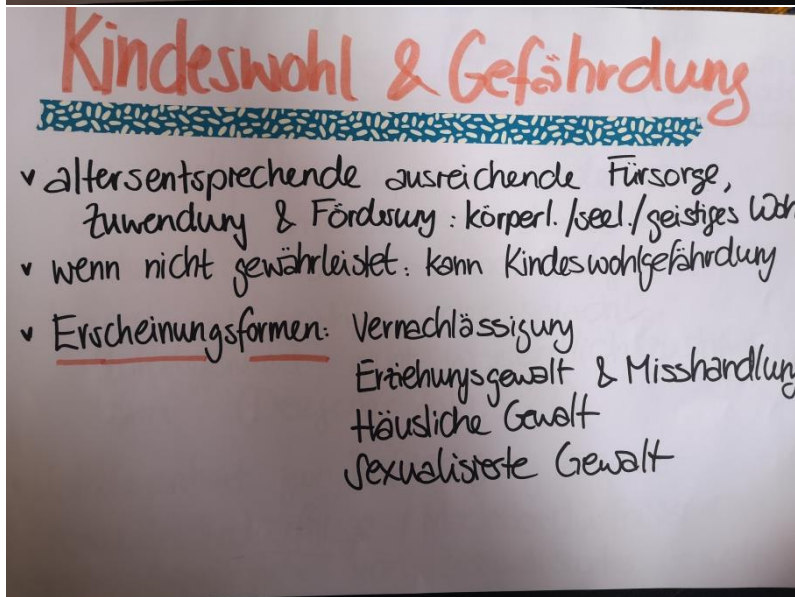 Kindeswohl & Gefährdung
v altersentsprechende ausreichende Fürsorge,
Zuwendung & Förderung : körperl./seel./geistiges Woh
v wenn nicht gewährleistet: kann Kindeswohlgefährdung
v Erscheinungsformen: Vernachlässigung
Erziehungsgewalt & Misshandlung
Häusliche Gewalt
Sexualisierte Gewalt